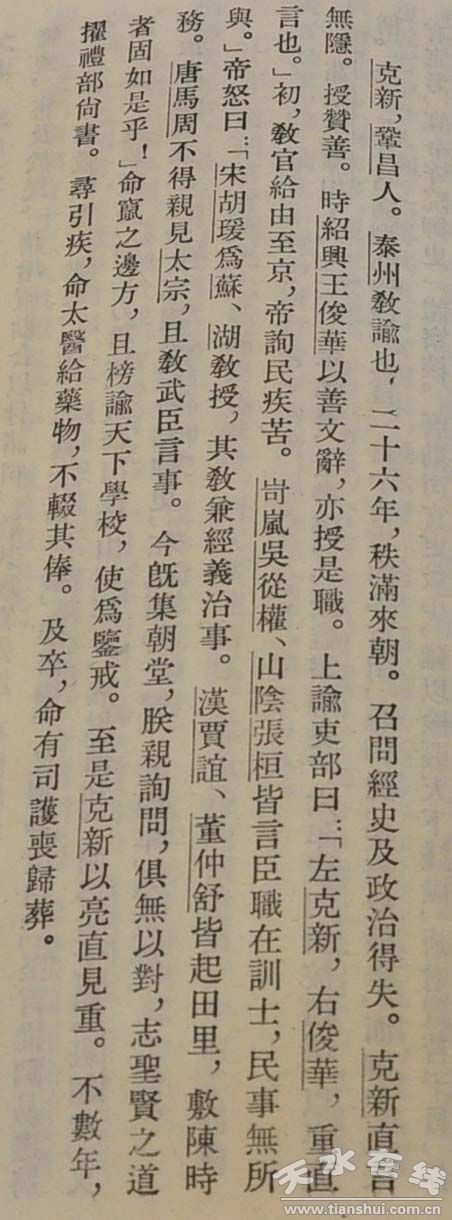 克新，鞏昌人。泰州敎諭也，二十六年，秩滿來朝。召問經史及政治得失。克新直言
無隱。授贊善。時紹興王俊華以善文辭，亦授是職。上諭吏部曰：「左克新，右俊華，重直
言也。」初，敎官給由至京，帝詢民疾苦。岢嵐吳從權、山陰張桓皆言臣職在訓士，民事無所
與。」帝怒曰：「宋胡瑗爲蘇、湖敎授，其敎兼經義治事。漢賈誼、董仲舒皆起田里，敷陳時
務。唐馬周不得親見太宗，且敎武臣言事。今旣集朝堂，朕親詢問，俱無以對，志聖賢之道
者固如是乎！」命竄之邊方，且榜諭天下學校，使爲鑒戒。至是克新以亮直見重。不數年，
擢禮部尙書。尋引疾，命太醫給藥物，不輟其俸。及卒，命有司護喪歸葬。
天水在线
www.tianshui.com.cn